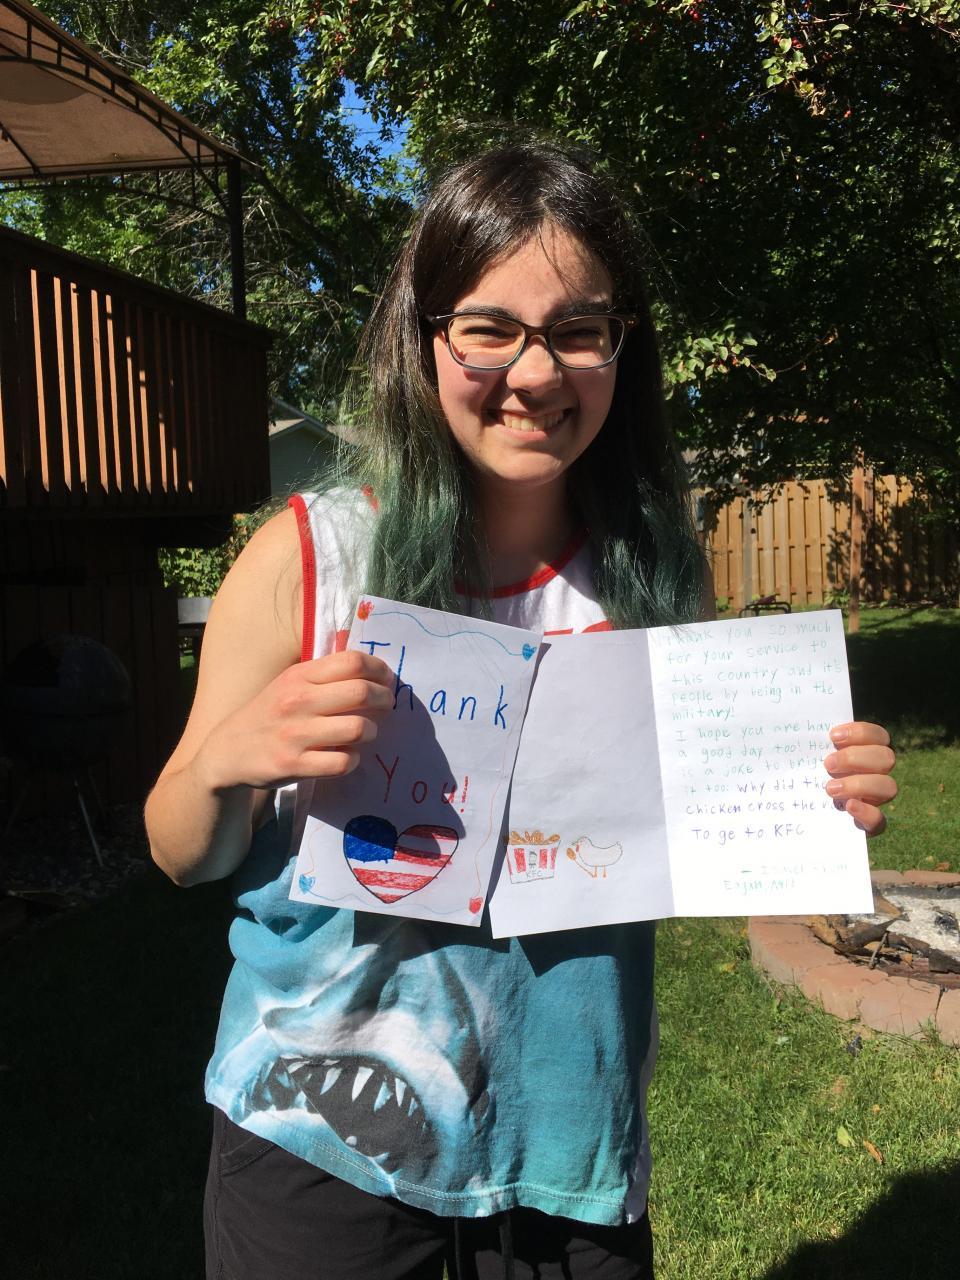 Thank
You!
KFC
Thank you so much
for your service to
this country and it's
people by being in the
military!
I hope you are
a good day too! Here
is a joke to
it too: Why did the
chicken cross the
To ge to KFC